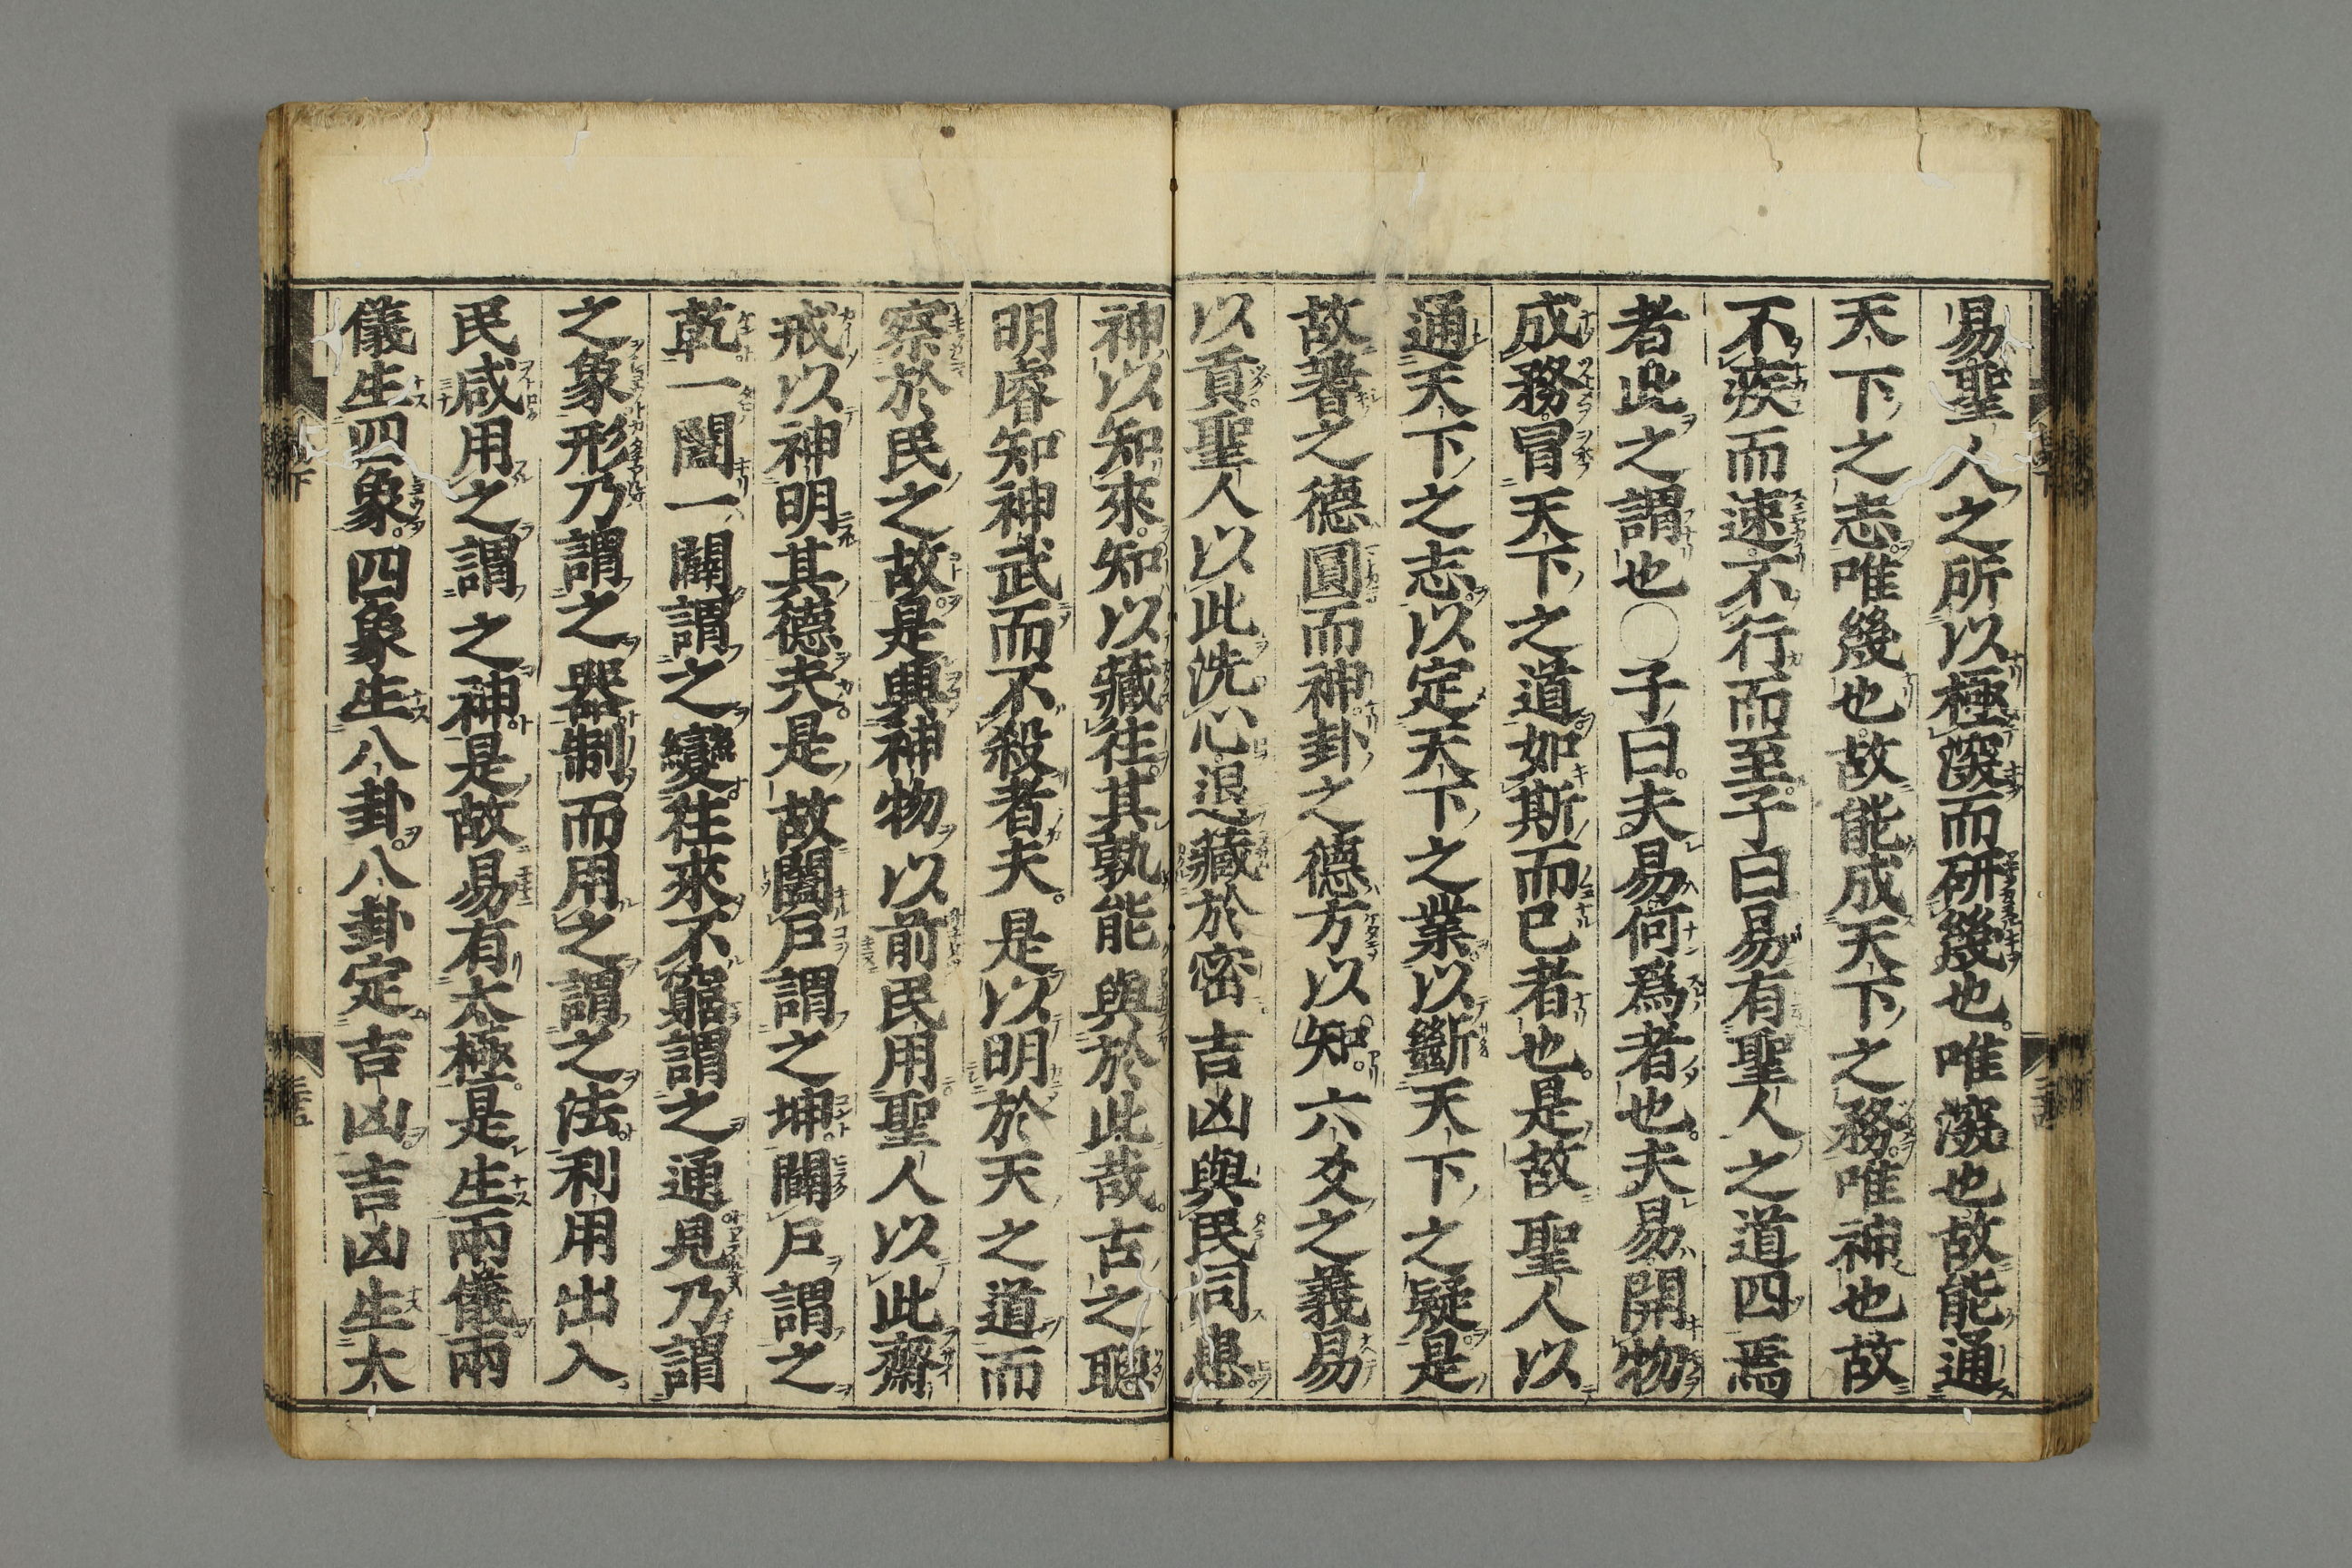 易聖人之所以極深而研幾也唯深也故能通
天下之志唯幾也故能成天下之務唯神也故
不疾而速不行而至子曰易有聖人之道四焉
者此之謂也〇子曰夫易何爲者也夫易開物
成務冒天下之道如斯而已者也是故聖人以
通天下之志以定天下之業以斷天下之疑是
故蓍之德圓而神卦之德方以知六爻之義易
以貢聖人以此洗心退藏於密吉凶與民同患
神以知來知以藏往其孰能與於此哉古之聰
明睿知神武而不殺者夫是以明於天之道而
察於民之故是興神物以前民用聖人以此齋
戒以神明其德夫是故闔戸謂之坤闢戸謂之
乾一闔一闢謂之變往來不窮謂之通見乃謂
之象形乃謂之器制而用之謂之法利用出入
民咸用之謂之神是故易有太極是生兩儀兩
儀生四象四象生八卦八卦定吉凶吉凶生大